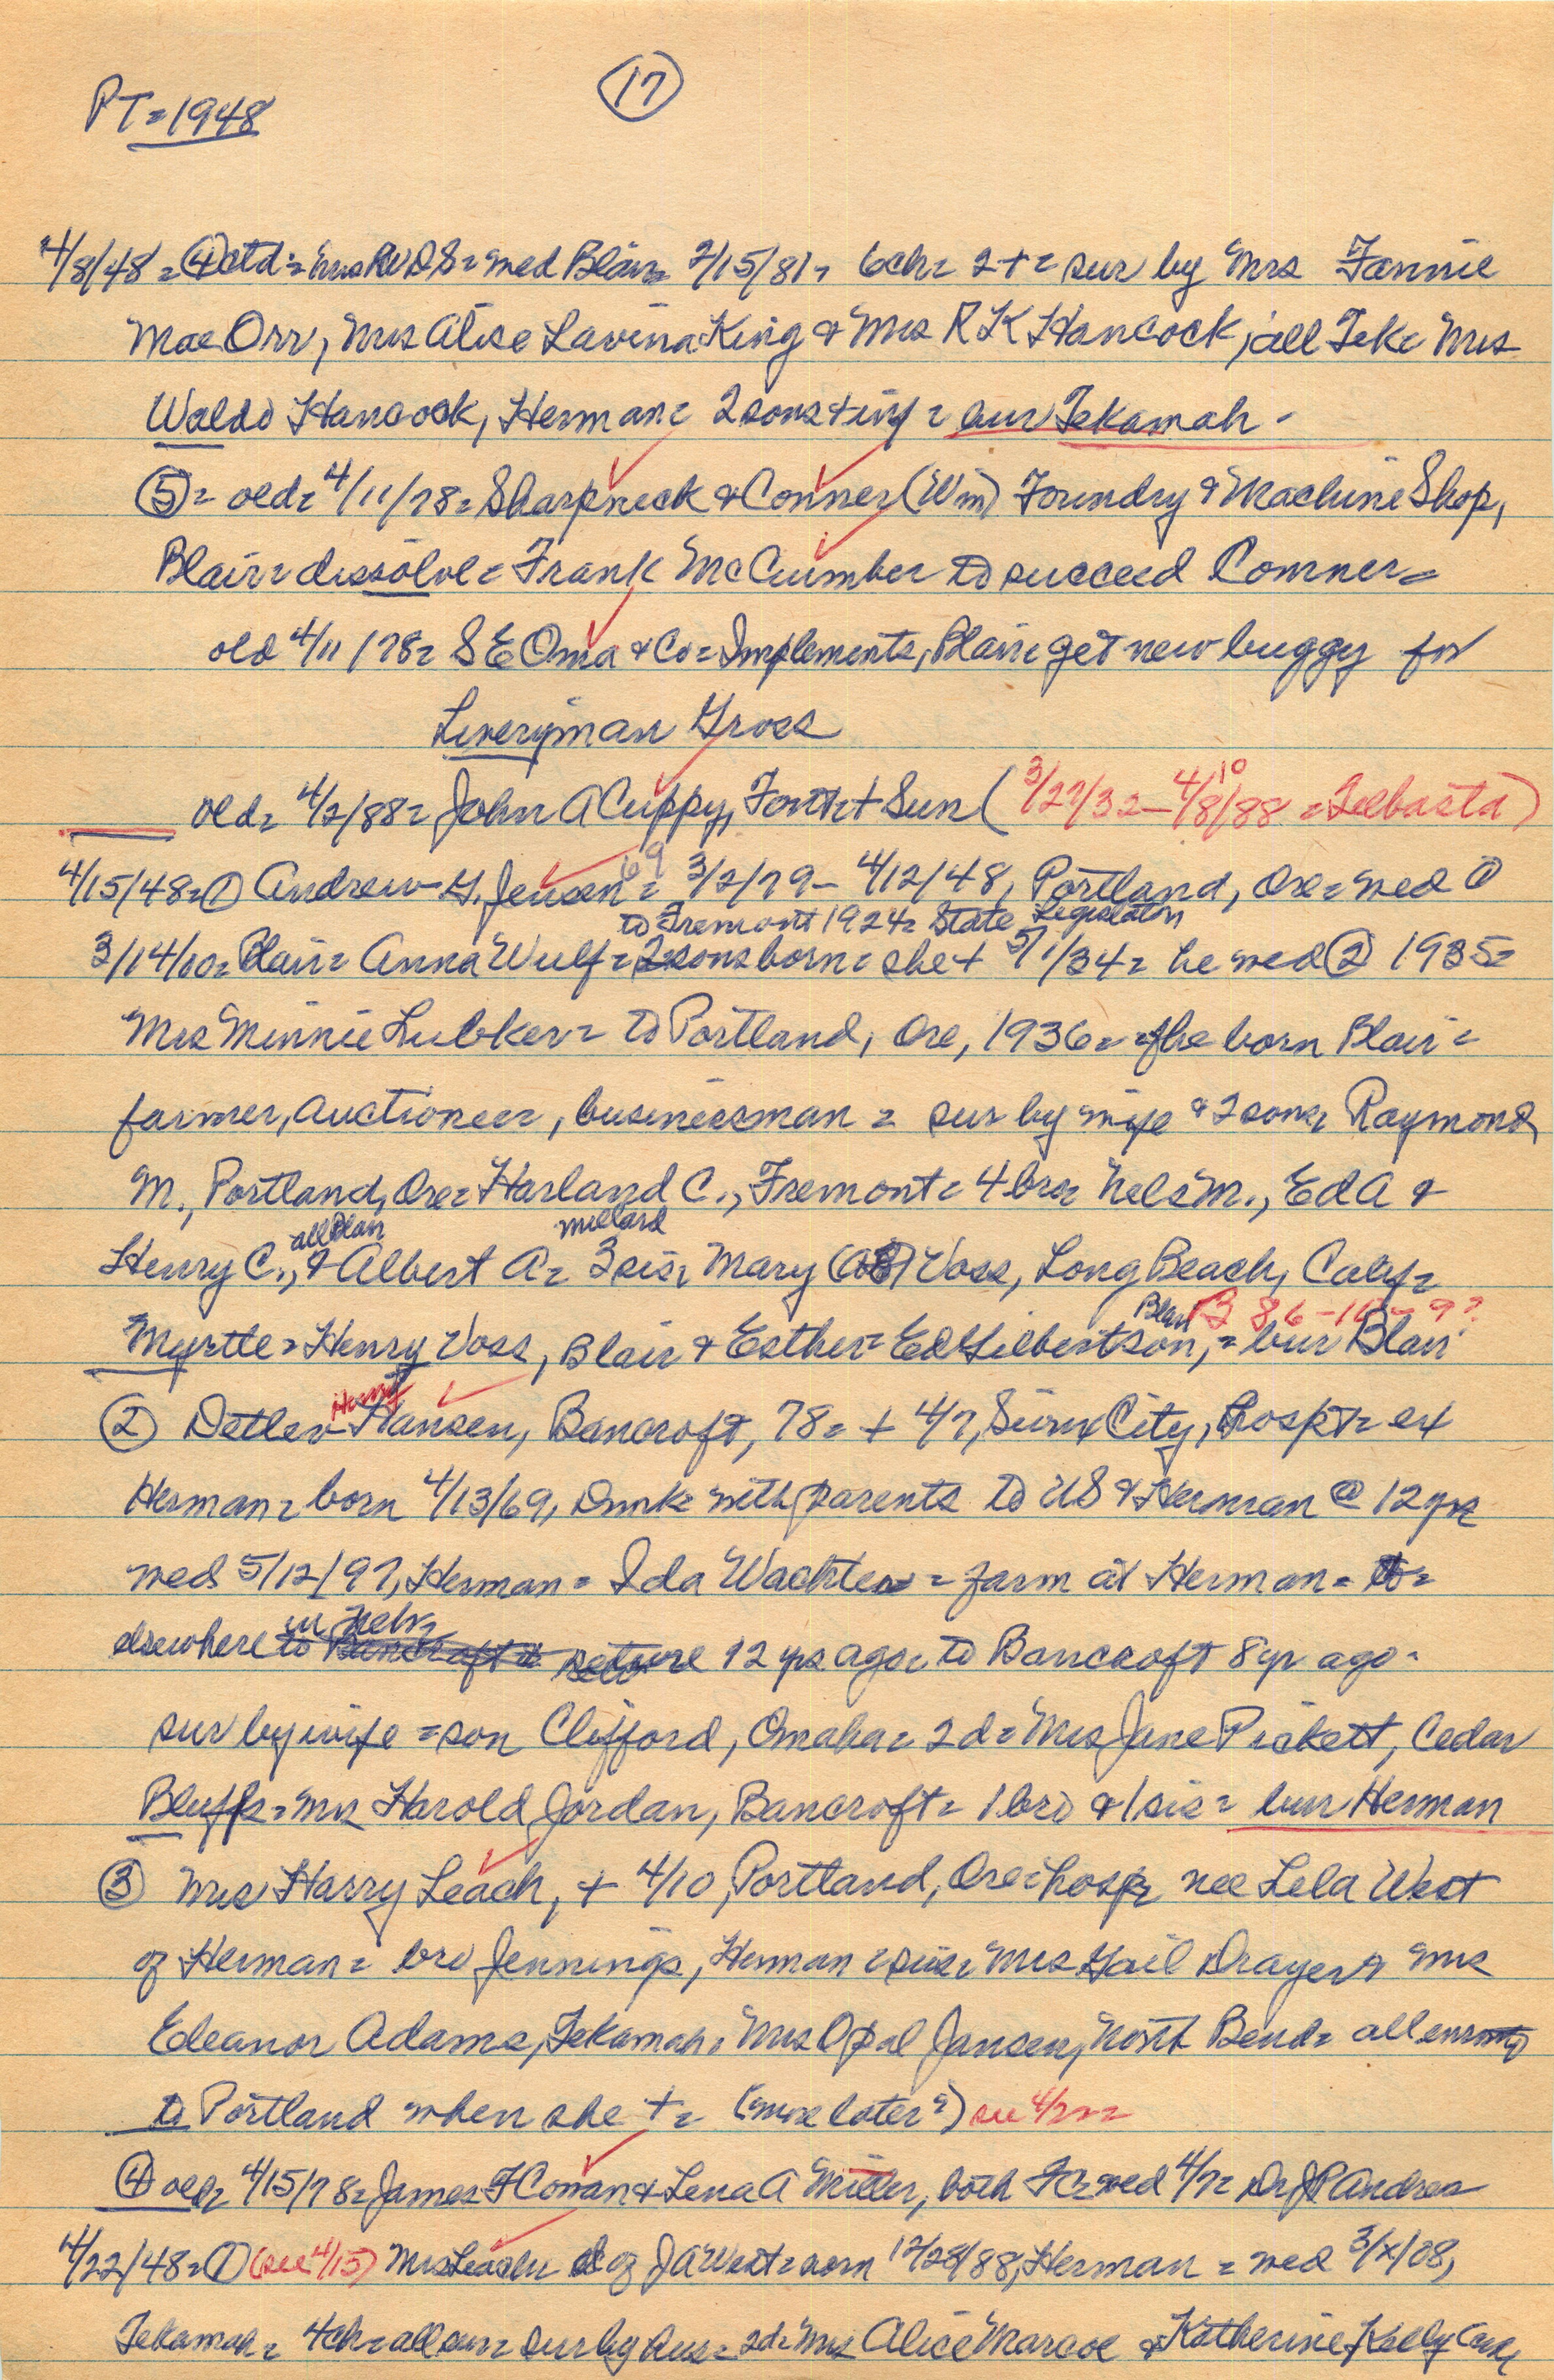 PT=1948
17
4/8/48= ④ctd= Mrs RWDS= wed Blair= 2/15/81= 6ch= 2+= sur by Mrs Fannie
Mae Orr, Mrs Alice Lavina King & Mrs R K Hancock, all Tek= Mrs
Waldo Hancock, Herman= 2 sons + inf= bur Tekamah-
⑤= old= 4/11/78= Sharpneck & Conner (Wm) Foundry & Machine Shop,
Blair= dissolve= Frank McCumber to succeed Conner=
old 4/11/78= S E Oma & Co= Implements, Blair= get new buggy for
Liveryman Gross
old= 4/2/88= John A Cuppy, Font + Sun (3/27/32-4/8/88 10 =Telbasta)
4/15/48=① Andrew G. Jensen= 69 3/2/79- 4/12/48, Portland, Ore= wed ①
to Fremont 1924= State Legislator
3/14/00= Blair= Anna Wulf= 2 sons born= she + 5/1/34= he wed ② 1935=
Mrs Minnie Lubker= to Portland, Ore, 1936= he born Blair=
farmer, auctioneer, businessman= sur by wife & 2 sons, Raymond
M., Portland, Ore= Harland C., Fremont= 4 bro= Nels M., Ed A &
all Blair Millard
Henry C., & Albert A= 3 sis, Mary (AB) Voss, Long Beach, Calif=
Blair B 86-10-9?
Myrtle= Henry Voss, Blair & Esther= Ed Gilbertson,= bur Blair
Henry
② Detlev Hansen, Bancroft, 78= + 4/7, Sioux City, hospt= ex
Herman= born 4/13/69, Dmk= with parents to US & Herman @ 12 yrs
wed 5/12/97, Herman= Ida Wachter= farm at Herman=
in Nebr=
elsewhere retire 12 yrs ago= to Bancroft 8 yr ago-
sur by wife= son Clifford, Omaha= 2d= Mrs Jane Pickett, Cedar
Bluffs= Mrs Harold Jordan, Bancroft= 1 bro & 1 sis= bur Herman
③ Mrs Harry Leach, + 4/10, Portland, Ore= hosp= nee Lela West
of Herman= bro Jennings, Herman= sis= Mrs Gail Drayer & Mrs
Eleanor Adams, Tekamah, Mrs Opal Jansen, North Bend= all enroute
to Portland when she += ("more later") see 4/22
④ old= 4/15/78= James F Conan & Lena A Miller, both FC= wed 4/7= Dr J P Andrew
4/22/48=① (see 4/15) Mrs Leach= d of J A West= born 12/28/88, Herman= wed 3/x/08,
Tekamah= 4ch= all sur= sur by hus= 2d= Mrs Alice Marcoe & Katherine Kelly